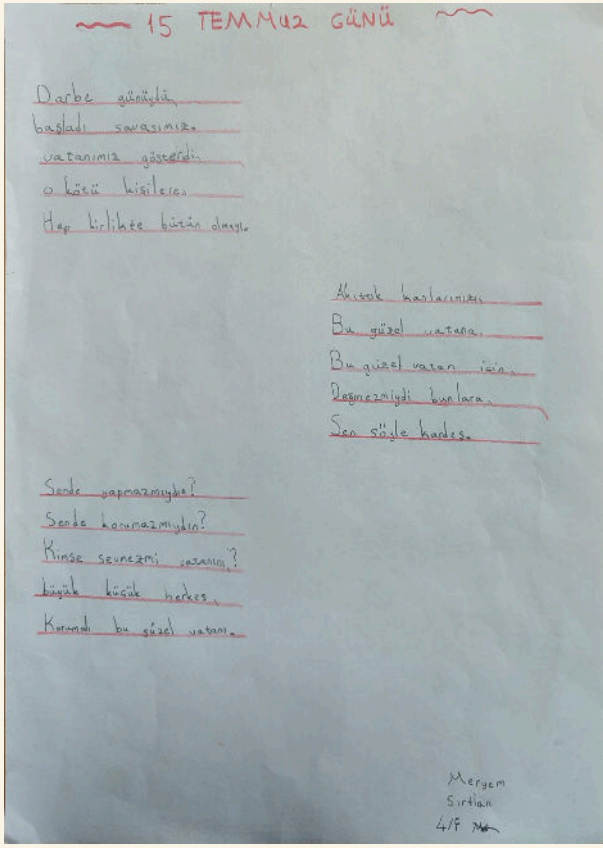 15 TEMMUZ GÜNÜ
Darbe günüydü,
başladı savaşımız.
vatanımız gösterdi,
o kötü kişilere,
Hep birlikte bütün olmayı.
Akıttık kanlarımızı,
Bu güzel vatana,
Bu güzel vatan için,
Değmezmiydi bunlara,
Sen söyle kardeş.
Sende yapmazmıydın?
Sende korumazmıydın?
Kimse sevmezmi vatanını?
büyük küçük herkes,
Korumalı bu güzel vatanı.
Meryem
Sırtlan
4/F